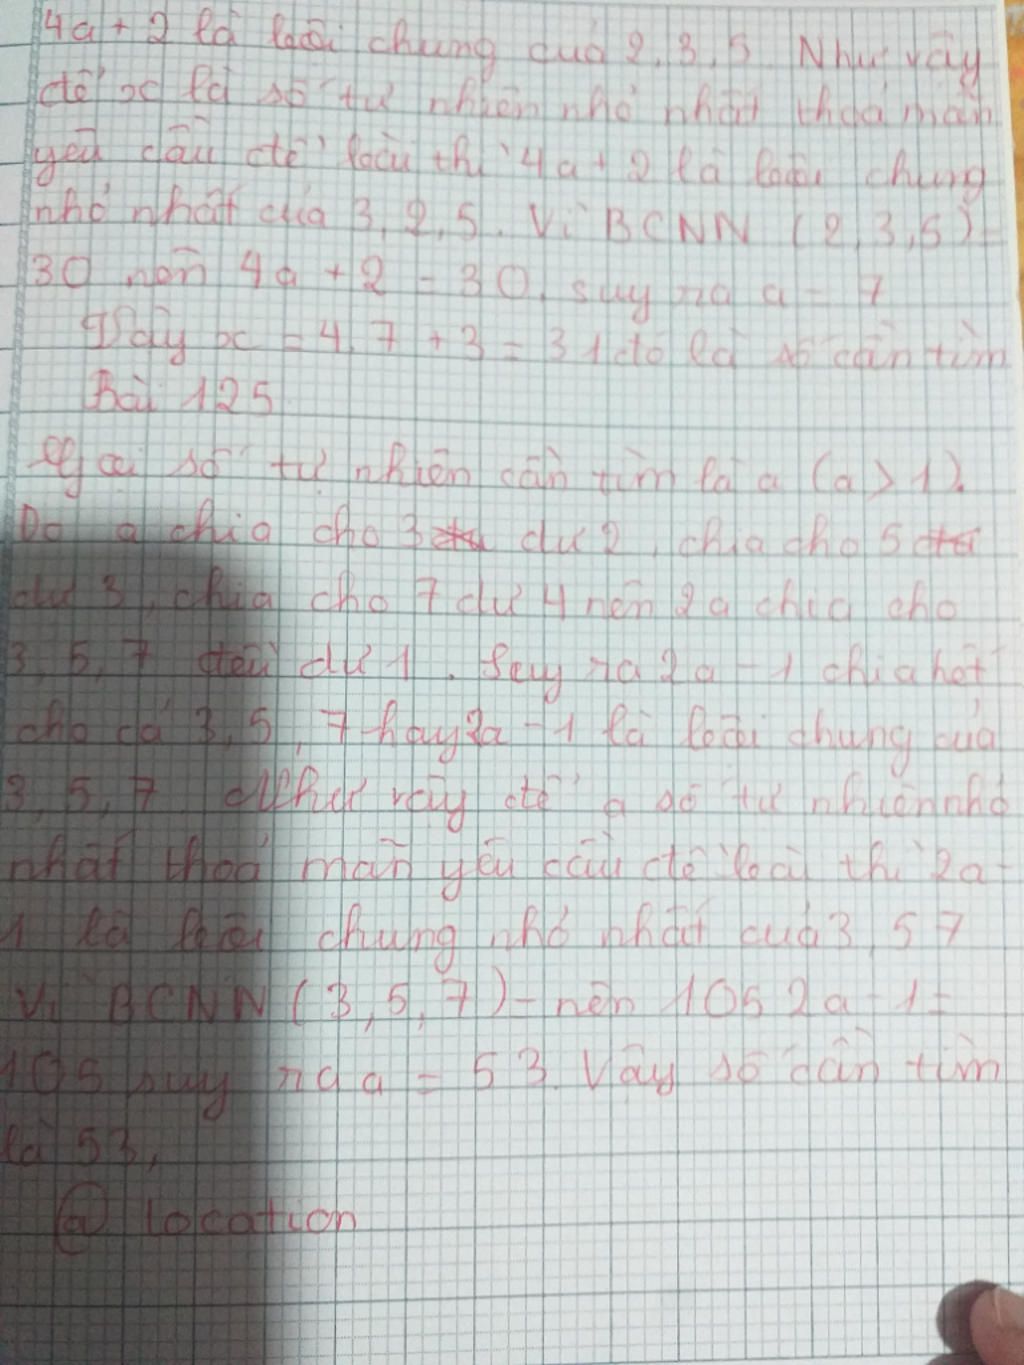 4a + 2 là bội chung của 2, 3, 5. Như vậy
để x là số tự nhiên nhỏ nhất thoả mãn
yêu cầu đề bài thì 4a + 2 là bội chung
nhỏ nhất của 3, 2, 5. Vì BCNN (2, 3, 5) =
30 nên 4a + 2 = 30, suy ra a = 7
Vậy x = 4. 7 + 3 = 31 đó là số cần tìm
Bài 125
Gọi số tự nhiên cần tìm là a (a > 1).
Do a chia cho 3 dư 2, chia cho 5
dư 3, chia cho 7 dư 4 nên 2a chia cho
3, 5, 7 đều dư 1. Suy ra 2a - 1 chia hết
cho cả 3, 5, 7 hay 2a - 1 là bội chung của
3, 5, 7. Như vậy để a số tự nhiên nhỏ
nhất thoả mãn yêu cầu đề bài thì 2a -
1 là bội chung nhỏ nhất của 3, 5 7
Vì BCNN (3, 5, 7) = nên 105 2a - 1 =
105 suy ra a = 53. Vậy số cần tìm
là 53,
@ location